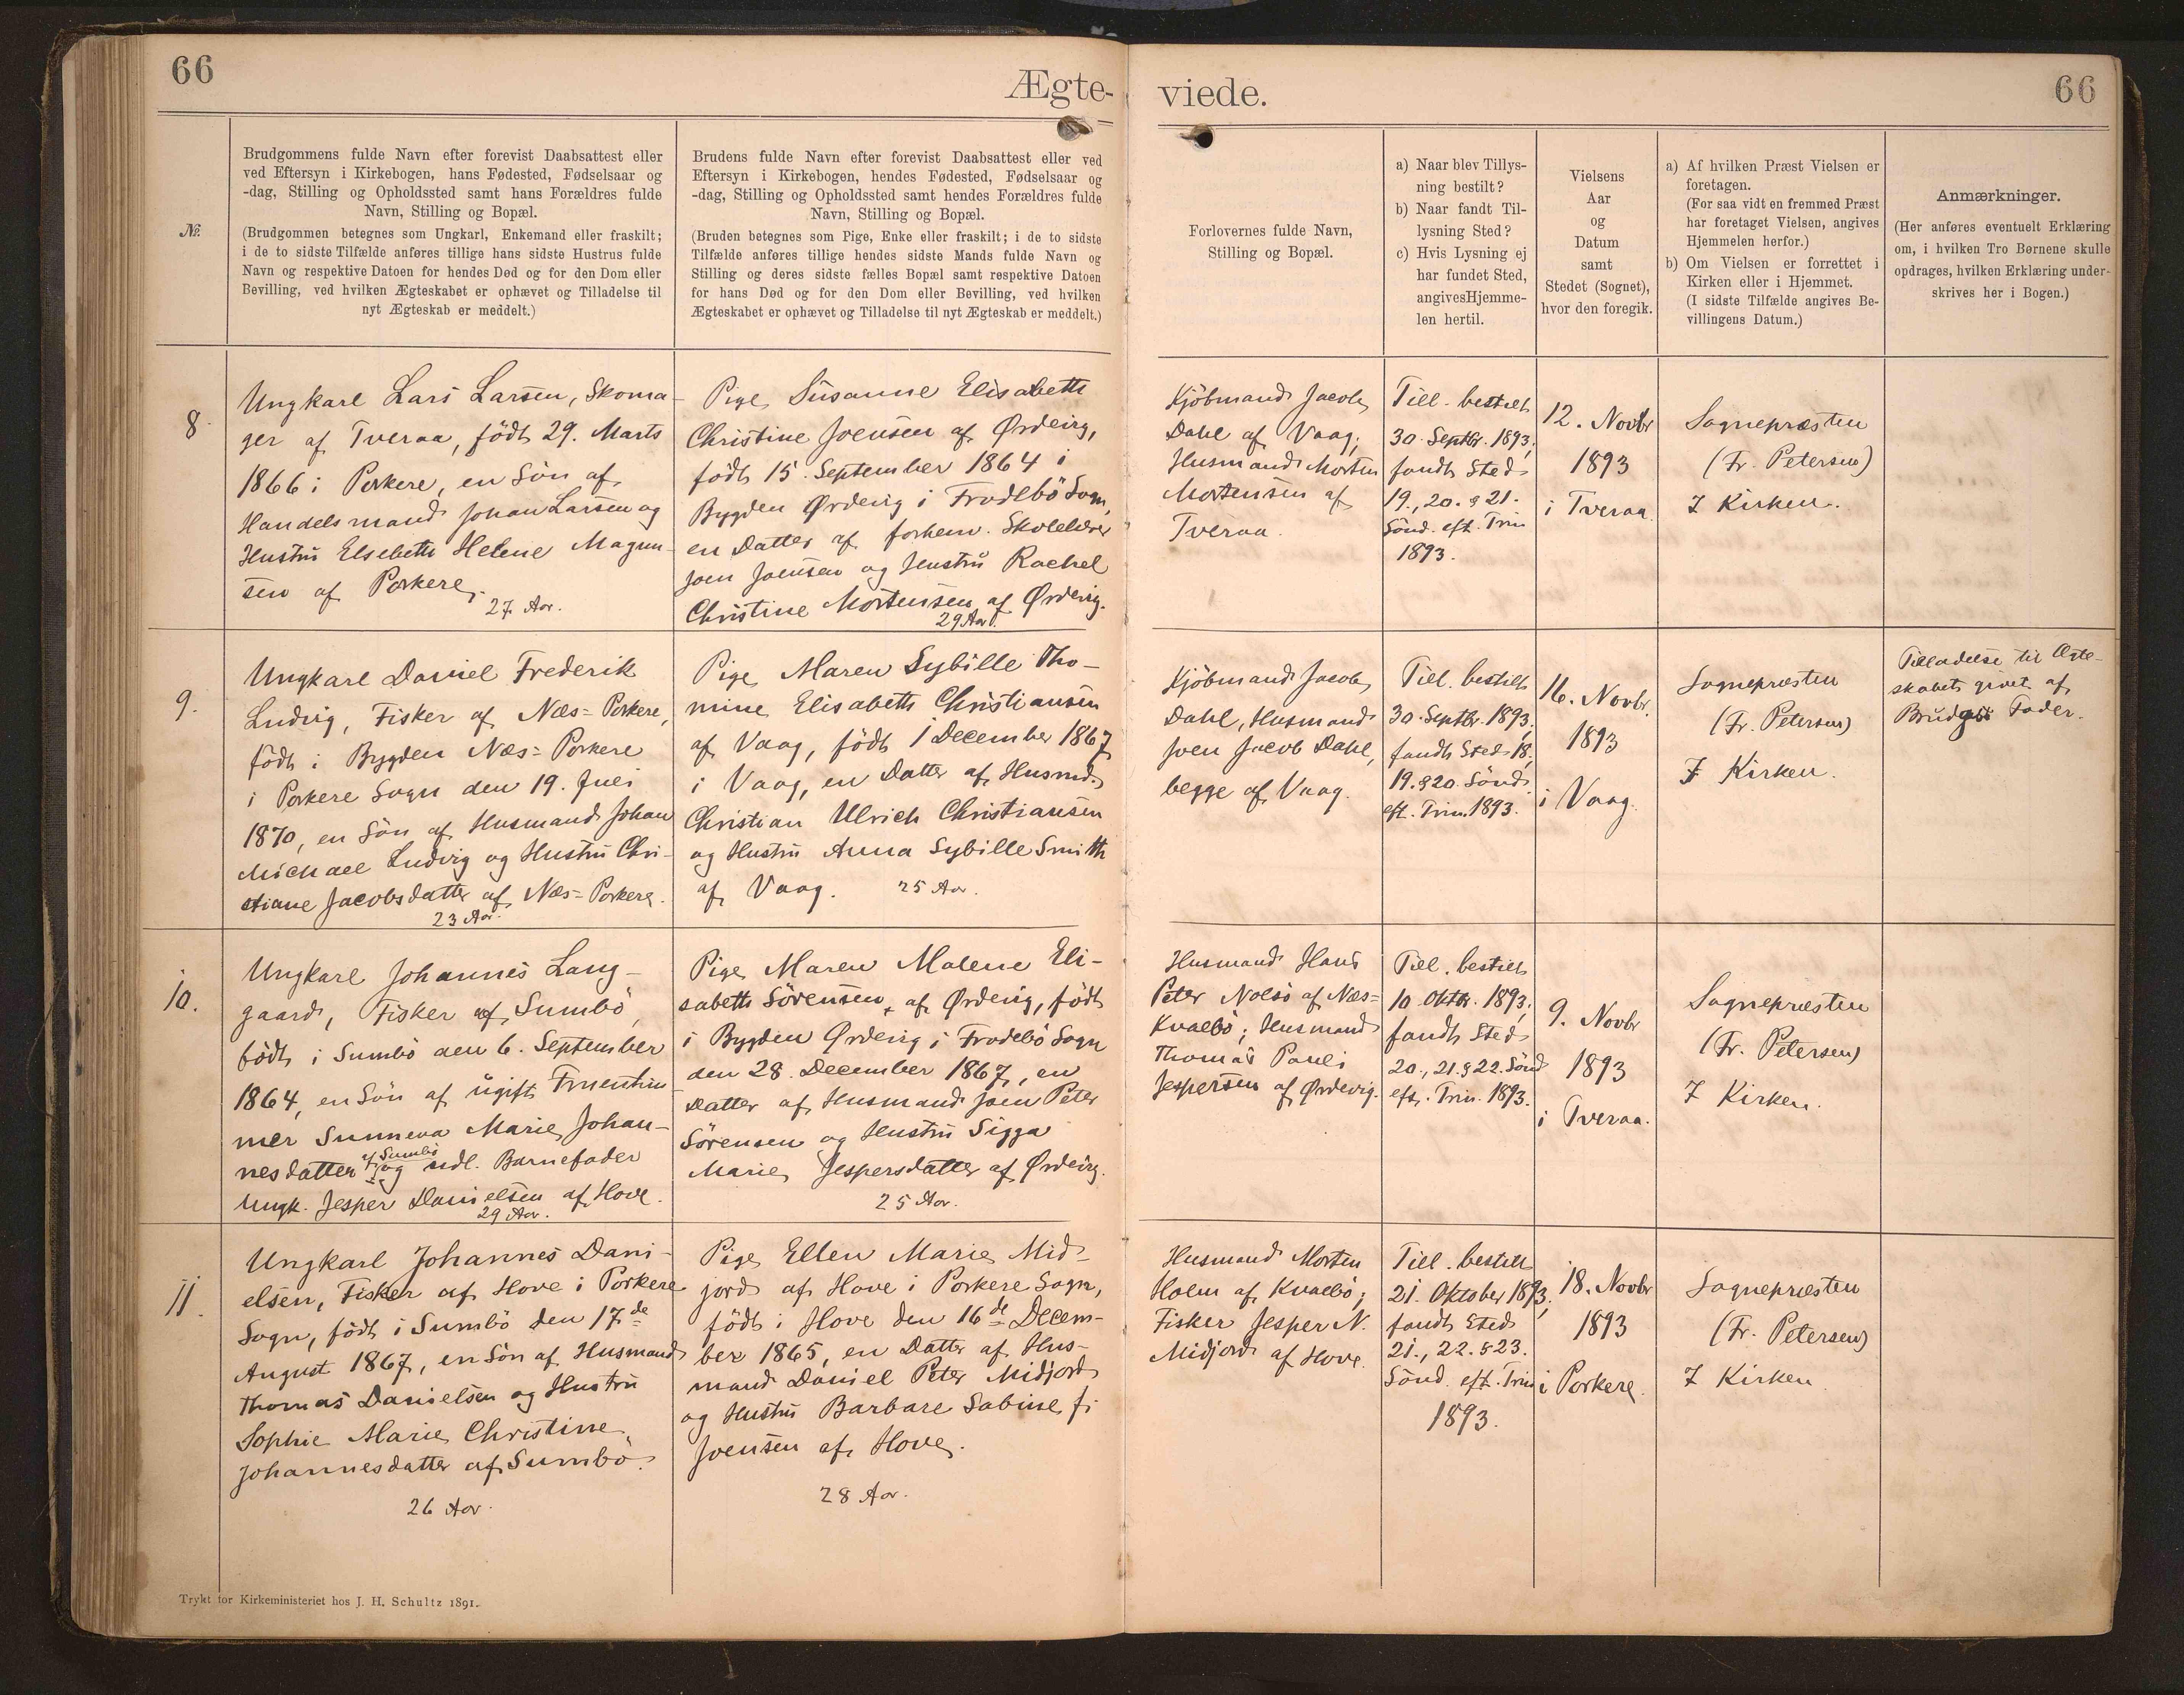 66
Ægte-
viede.
66
№.
Brudgommens fulde Navn efter forevist Daabsattest eller
ved Eftersyn i Kirkebogen, hans Fødested, Fødselsaar og
-dag, Stilling og Opholdssted samt hans Forældres fulde
Navn, Stilling og Bopæl.
(Brudgommen betegnes som Ungkarl, Enkemand eller fraskilt;
i de to sidste Tilfælde anføres tillige hans sidste Hustrus fulde
Navn og respektive Datoen for hendes Død og for den Dom eller
Bevilling, ved hvilken Ægteskabet er ophævet og Tilladelse til
nyt Ægteskab er meddelt.)
Brudens fulde Navn efter forevist Daabsattest eller ved
Eftersyn i Kirkebogen, hendes Fødested, Fødselsaar og
-dag, Stilling og Opholdssted samt hendes Forældres fulde
Navn, Stilling og Bopæl.
(Bruden betegnes som Pige, Enke eller fraskilt; i de to sidste
Tilfælde anføres tillige hendes sidste Mands fulde Navn og
Stilling og deres sidste fælles Bopæl samt respektive Datoen
for hans Død og for den Dom eller Bevilling, ved hvilken
Ægteskabet er ophævet og Tilladelse til nyt Ægteskab er meddelt.)
Forlovernes fulde Navn,
Stilling og Bopæl.
a) Naar blev Tillys-
ning bestilt?
b) Naar fandt Til-
lysning Sted?
c) Hvis Lysning ej
har fundet Sted,
angivesHjemme-
len hertil.
Vielsens
Aar
og
Datum
samt
Stedet (Sognet),
hvor den foregik.
a) Af hvilken Præst Vielsen er
foretagen.
(For saa vidt en fremmed Præst
har foretaget Vielsen, angives
Hjemmelen herfor.)
b) Om Vielsen er forrettet i
Kirken eller i Hjemmet.
(I sidste Tilfælde angives Be-
villingens Datum.)
Anmærkninger.
(Her anføres eventuelt Erklæring
om, i hvilken Tro Børnene skulle
opdrages, hvilken Erklæring under-
skrives her i Bogen.)
8.
Ungkarl Lars Larsen, Skoma-
ger af Tveraa, født 29. Marts
1866 i Porkere, en Søn af
Handelsmand Johan Larsen og
Hustru Elsebeth Helene Magnus-
sen af Porkere.
27 Aar.
Pige Susanne Elisabeth
Christine Joensen af Ørdevig,
født 15. September 1864 i
Bygden Ørdevig i Frodebö Sogn,
en Datter af forhenv. Skolelærer
Joen Joensen og Hustru Rachel
Christine Mortensen af Ørdevig.
29 Aar.
Kjöbmand Jacob
Dahl af Vaag;
Husmand Morten
Mortensen af
Tveraa.
Till. bestilt
30. Septbr. 1893,
fandt Sted
19., 20. & 21.
Sönd. eft. Trin
1893.
12. Novbr
1893
i Tveraa.
Sognepræsten
(Fr. Petersen)
I Kirken.
9.
Ungkarl Daniel Frederik
Ludvig, Fisker af Næs=Porkere,
födt i Bygden Næs=Porkere
i Porkere Sogn den 19. Juli
1870, en Søn af Husmand Johan
Michael Ludvig og Hustru Chri-
stiane Jacobsdatter af Næs=Porkere.
23 Aar.
Pige Maren Sybille Tho-
mine Elisabeth Christiansen
af Vaag, födt 1 December 1867
i Vaag, en Datter af Husmd.
Christian Ulrich Christiansen
og Hustru Anna Sybille Smith
af Vaag. 25 Aar.
Kjöbmand Jacob
Dahl, Husmand
Joen Jacob Dahl,
begge af Vaag.
Till. bestilt
30. Septbr. 1893,
fandt Sted 18.,
19. & 20. Sönd.
eft. Trin. 1893.
16. Novbr.
1893
i Vaag.
Sognepræsten
(Fr. Petersen)
I Kirken.
Tilladelse til Ægte-
skabet givet af
Brudgs Fader.
10.
Ungkarl Johannes Lang-
gaard, Fisker af Sumbö,
födt i Sumbö den 6. September
1864, en Søn af ugift Fruentim-
mer Sunneva Marie Johan-
af Sumbö
nesdatter og udl. Barnefader
Ungk. Jesper Danielsen af Hove.
29 Aar.
Pige Maren Malene Eli-
sabeth Sörensen, af Ørdevig, födt
i Bygden Ørdevig i Frodebö Sogn
den 28. December 1867, en
Datter af Husmand Joen Peter
Sörensen og Hustru Sigga
Marie Jespersdatter af Ørdevig.
25 Aar.
Husmand Hans
Peter Nolsö af Næs=
Kvalbö; Husmand
Thomas Pauli
Jespersen af Ørdevig.
Till. bestilt
10. Oktbr. 1893,
fandt Sted
20., 21. & 22. Sönd
eft. Trin. 1893.
9. Novbr
1893
i Tveraa.
Sognepræsten
(Fr. Petersen)
I Kirken.
11.
Ungkarl Johannes Dani-
elsen, Fisker af Hove i Porkere
Sogn, födt i Sumbö den 17de
August 1867, en Søn af Husmand
Thomas Danielsen og Hustru
Sophie Marie Christine
Johannesdatter af Sumbö.
26 Aar.
Pige Ellen Marie Mid-
jord af Hove i Porkere Sogn,
födt i Hove den 16de Decem-
ber 1865, en Datter af Hus-
mand Daniel Peter Midjord
og Hustru Barbare Sabine f.
Joensen af Hove.
28 Aar.
Husmand Morten
Holm af Kvalbö;
Fisker Jesper N.
Midjord af Hove.
Till. bestilt
21. Oktober 1893,
fandt Sted
21., 22. & 23.
Sönd. eft. Trin
1893.
18. Novbr
1893
i Porkere.
Sognepræsten
(Fr. Petersen)
I Kirken.
Trykt for Kirkeministeriet hos J. H. Schultz 1891.